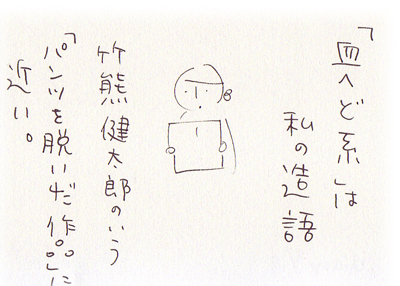 「血へど系」は
私の造語
竹熊健太郎のいう
「パンツを脱いだ作品」に
近い。